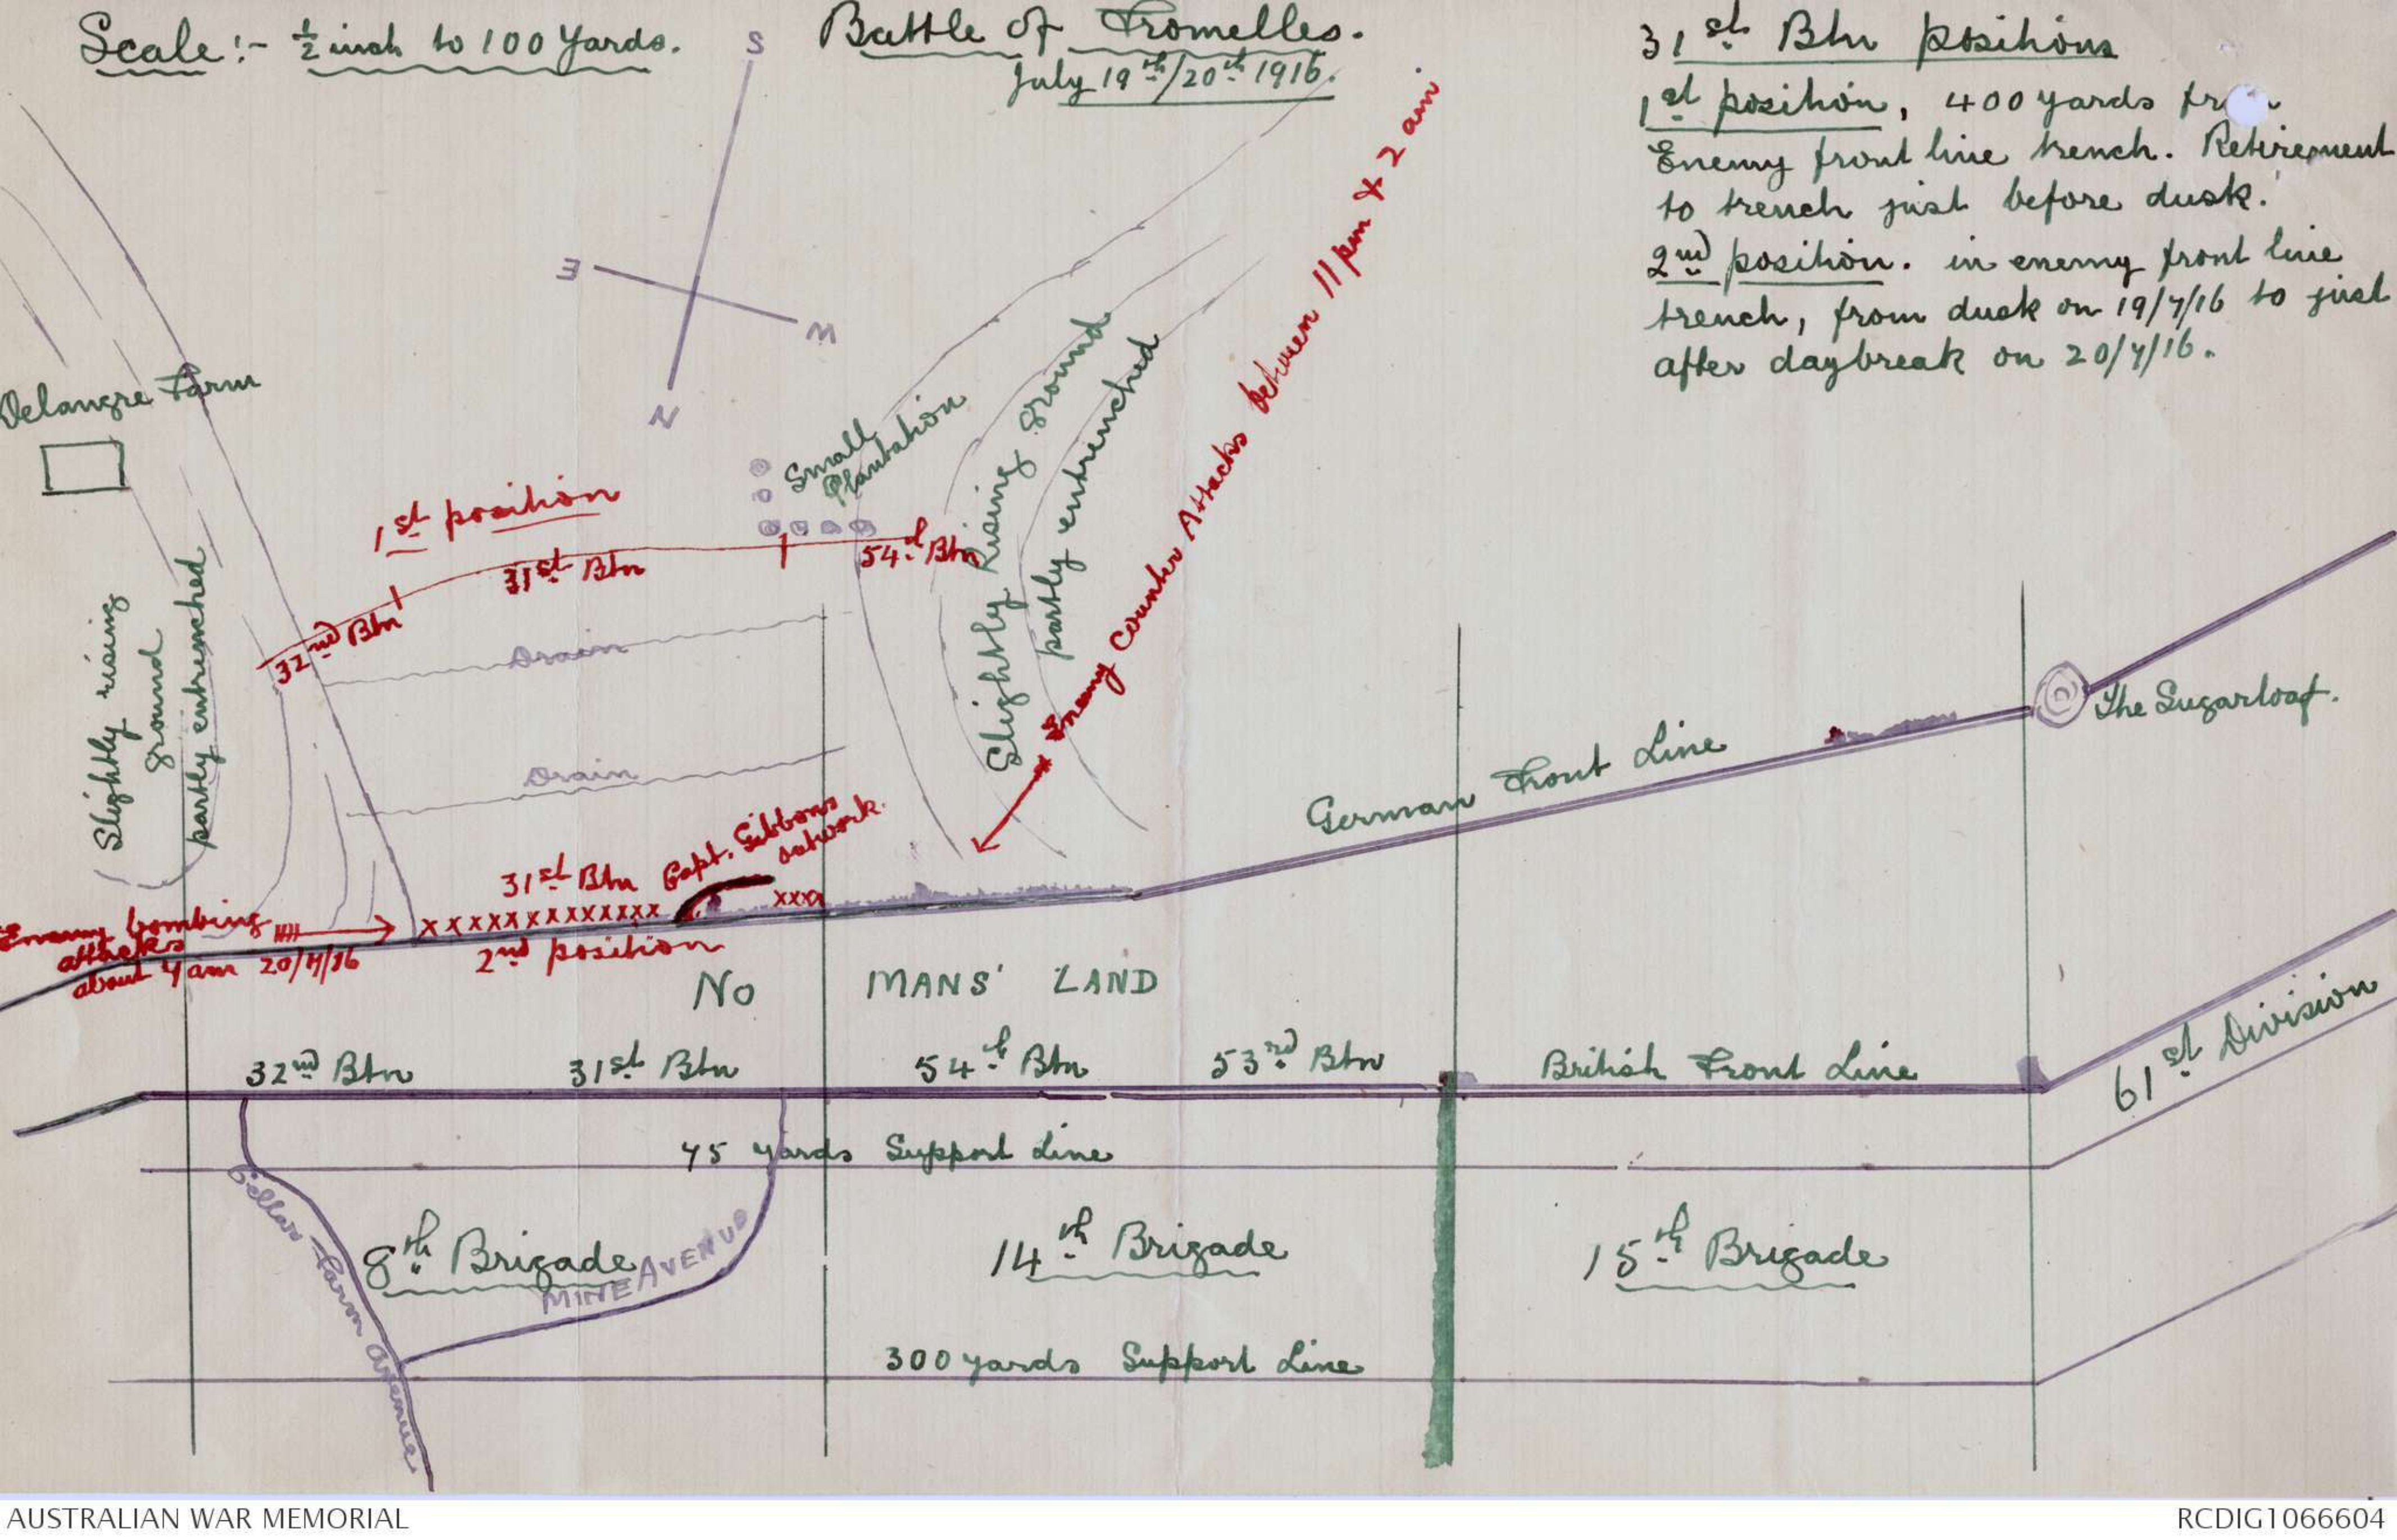 Scale:- ½ inch to 100 Yards.
Battle of Fromelles.
July 19th/20th 1916.
31st Btn positions
1st position, 400 yards
Enemy front line trench. Retirement
to trench just before dusk.
2nd position. in enemy front line
trench, from dusk on 19/7/16 to just
after daybreak on 20/7/16.
S
E
W
N
Delangre Farm
Small
Plantation
Slightly Rising ground
partly entrenched
Enemy Counter Attacks between 11 pm & 2 am
1st position
31st Btn
54th Btn
32nd Btn
Drain
Drain
Slightly rising
ground
partly entrenched
The Sugarloaf.
German Front Line
Capt. Gibbons
outwork.
31st Btn
xxxxxxxxxxxxx
xxxx
2nd position
Enemy bombing
attacks
about 4 am 20/7/16
No MANS' LAND
32nd Btn
31st Btn
54th Btn
53rd Btn
British Front Line
61st Division
75 yards Support Line
Cellar Farm Avenue
8th Brigade
MINE AVENUE
14th Brigade
15th Brigade
300 yards Support Line
AUSTRALIAN WAR MEMORIAL
RCDIG1066604